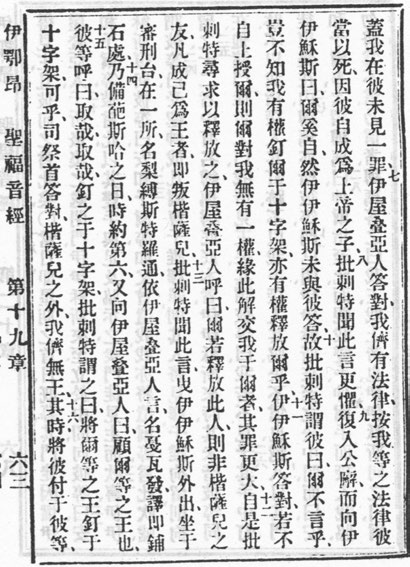 七蓋我在彼未見一罪伊屋叠亞人答對我儕有法律按我等之法律彼
當以死因彼自成爲上帝之子八批剌特聞此言更懼九復入公廨而向伊
伊穌斯曰爾奚自然伊伊穌斯未與彼答十故批剌特謂彼曰爾不言乎
豈不知我有權釘爾于十字架亦有權釋放爾乎十一伊伊穌斯答對若不
自上授爾則爾對我無有一權緣此解交我于爾者其罪更大十二自是批
剌特尋求以釋放之伊屋叠亞人呼曰爾若釋放此人則非楷薩兒之
友凡成己爲王者即叛楷薩兒十三批剌特聞此言曳伊伊穌斯外出坐于
審刑台在一所名梨縛斯特羅通依伊屋叠亞人言名戞瓦發譯即鋪
石處十四乃備葩斯哈之日時約第六又向伊屋叠亞人曰顧爾等之王也
十五彼等呼曰取哉取哉釘之于十字架批剌特謂之曰將爾等之王釘于
十字架可乎司祭首答對楷薩兒之外我儕無王十六其時將彼付于彼等
伊鄂昂 聖福音經 第十九章 六三